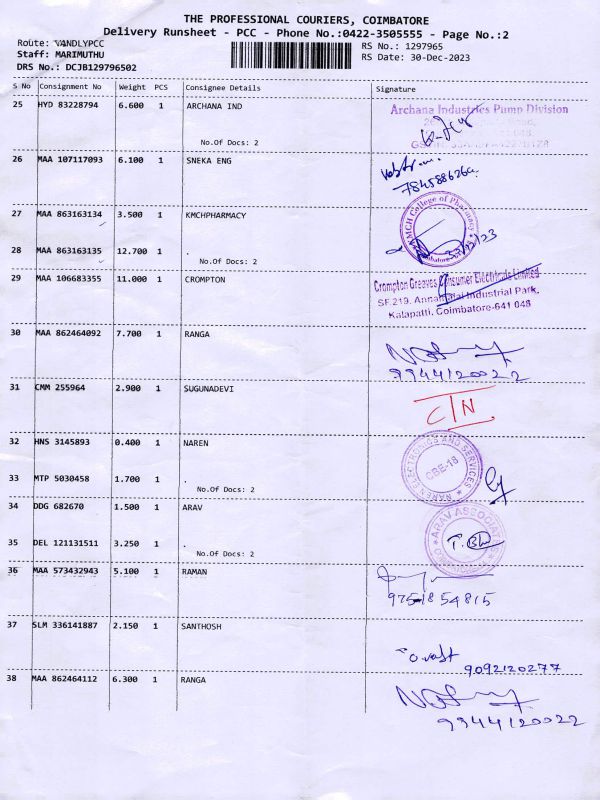 THE PROFESSIONAL COURIERS, COIMBATORE
Delivery Runsheet - PCC - Phone No.:0422-3505555 - Page No.:2
Route: VANDLYPCC RS No.: 1297965
Staff: MARIMUTHU RS Date: 30-Dec-2023
DRS No.: DCJB129796502
S No Consignment No Weight PCS Consignee Details Signature
25 HYD 83228794 6.600 1 ARCHANA IND Archana Industries Pump Division
No.Of Docs: 2
26 MAA 107117093 6.100 1 SNEKA ENG
27 MAA 863163134 3.500 1 KMCHPHARMACY KMCH College of Pharmacy
28 MAA 863163135 12.700 1 .
No.Of Docs: 2
29 MAA 106683355 11.000 1 CROMPTON Crompton Greaves Consumer Electricals Limited
SF.219, Annamalai Industrial Park,
Kalapatti, Coimbatore-641 048
30 MAA 862464092 7.700 1 RANGA
9944120022
31 CMM 255964 2.900 1 SUGUNADEVI C/N
32 HNS 3145893 0.400 1 NAREN NAREN ELECTRONICS AND SERVICES
CBE-18
33 MTP 5030458 1.700 1 .
No.Of Docs: 2
34 DDG 682670 1.500 1 ARAV ARAV ASSOCIATES
35 DEL 121131511 3.250 1 .
No.Of Docs: 2
36 MAA 573432943 5.100 1 RAMAN
9751854815
37 SLM 336141887 2.150 1 SANTHOSH
9092120277
38 MAA 862464112 6.300 1 RANGA
9944120022